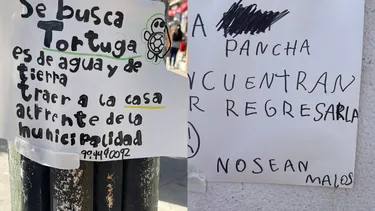 Se busca
Tortuga
es de agua y de
tierra
traer a la casa
alfrente de la
municipalidad
994490092
A
PANCHA
NCUENTRAN
R REGRESARLA
NOSEAN
MALOS